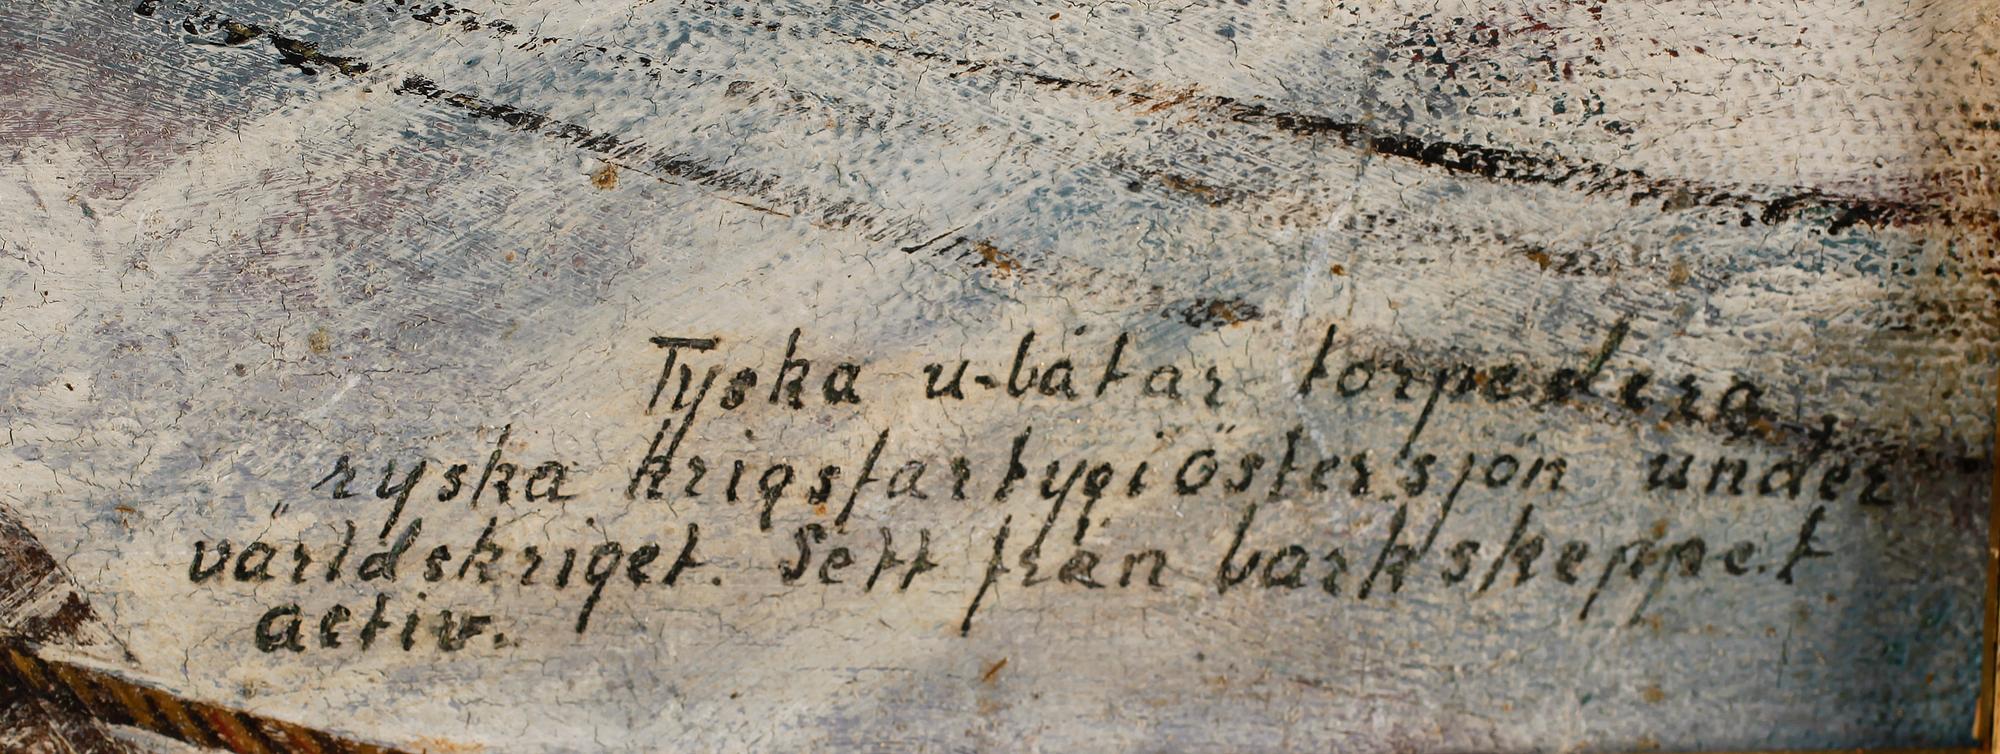 Tyska u-båtar torpedera
ryska krigsfartyg i östersjön under
världskriget. Sett från barkskeppet
activ.